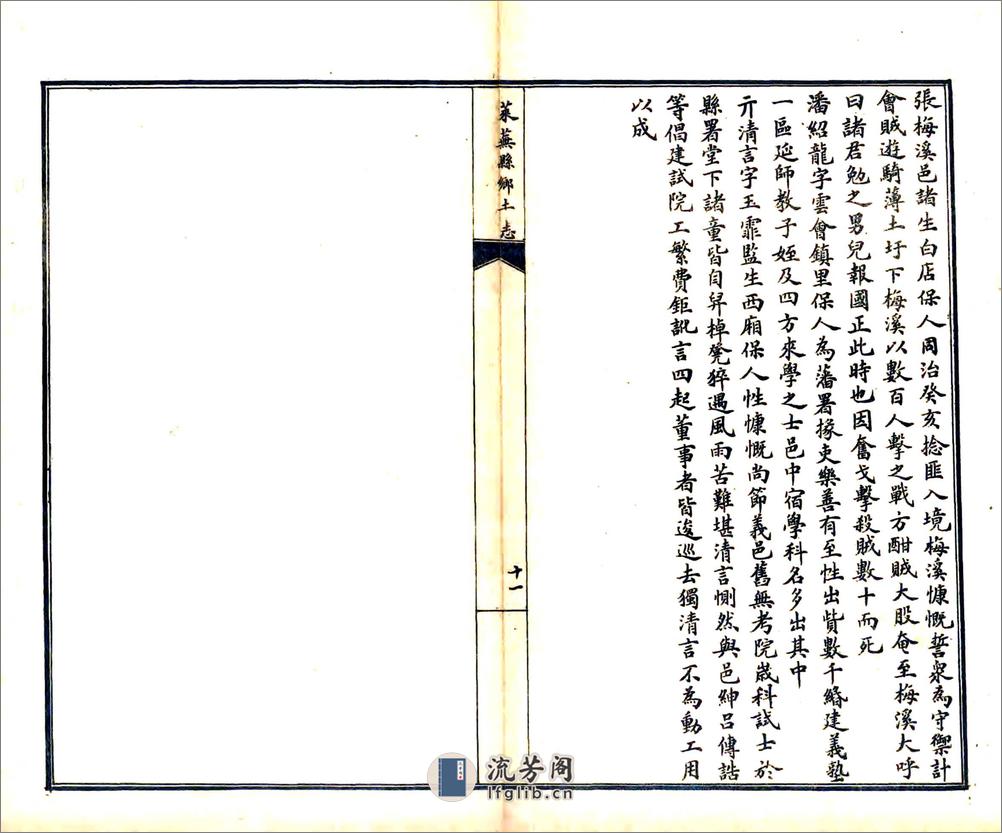 張梅溪邑諸生白店保人同治癸亥捻匪入境梅溪慷慨誓眾為守禦計
會賊遊騎薄土圩下梅溪以數百人擊之戰方酣賊大股奄至梅溪大呼
曰諸君勉之男兒報國正此時也因奮戈擊殺賊數十而死
潘紹龍字雲會鎮里保人為藩署掾吏樂善有至性出貲數千緡建義塾
一區延師教子姪及四方來學之士邑中宿學科名多出其中
亓清言字玉霏監生西廂保人性慷慨尚節義邑舊無考院歲科試士於
縣署堂下諸童皆自舁棹凳猝遇風雨苦難堪清言惻然與邑紳呂傳誥
等倡建試院工繁費鉅訛言四起董事者皆逡巡去獨清言不為動工用
以成
萊蕪縣鄉土志
十一
流芳阁
lfglib.cn